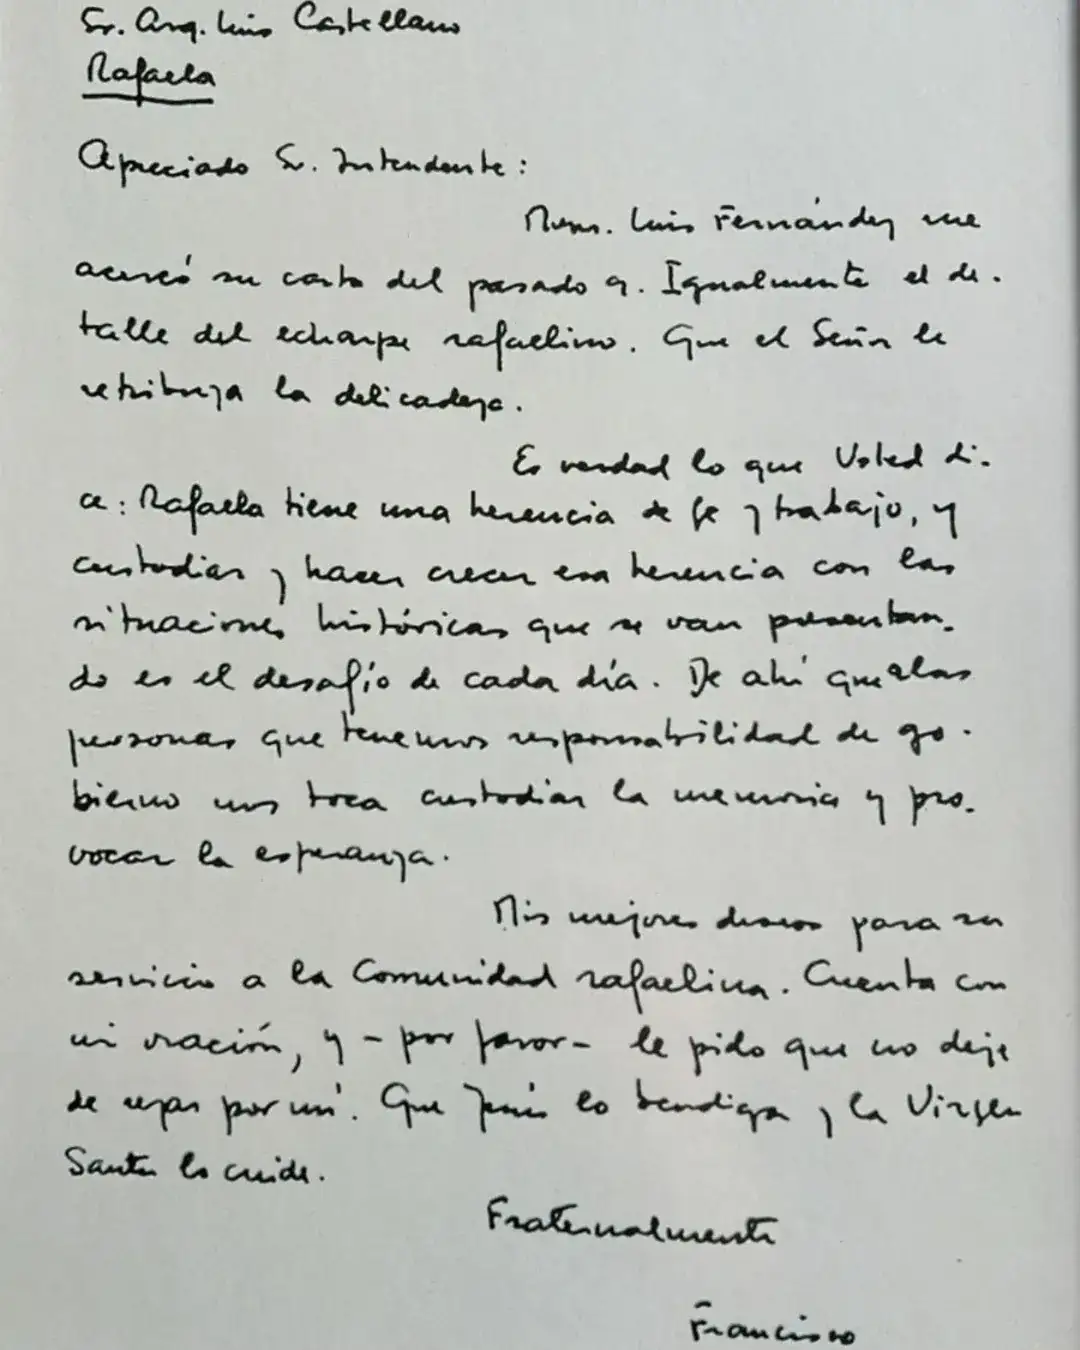 Sr. Arq. Luis Castellano
Rafaela
Apreciado Sr. Intendente:
Mons. Luis Fernández me
acercó su carta del pasado 9. Igualmente el de-
talle del echarpe rafaelino. Que el Señor le
retribuya la delicadeza.
Es verdad lo que Usted di-
ce: Rafaela tiene una herencia de fe y trabajo, y
custodiar y hacer crecer esa herencia con las
situaciones históricas que se van presentan-
do es el desafío de cada día. De ahí que a las
personas que tenemos responsabilidad de go-
bierno nos toca custodiar la memoria y pro-
vocar la esperanza.
Mis mejores deseos para su
servicio a la Comunidad rafaelina. Cuenta con
mi oración, y - por favor - le pido que no deje
de rezar por mí. Que Jesús lo bendiga y la Virgen
Santa lo cuide.
Fraternalmente
Francisco